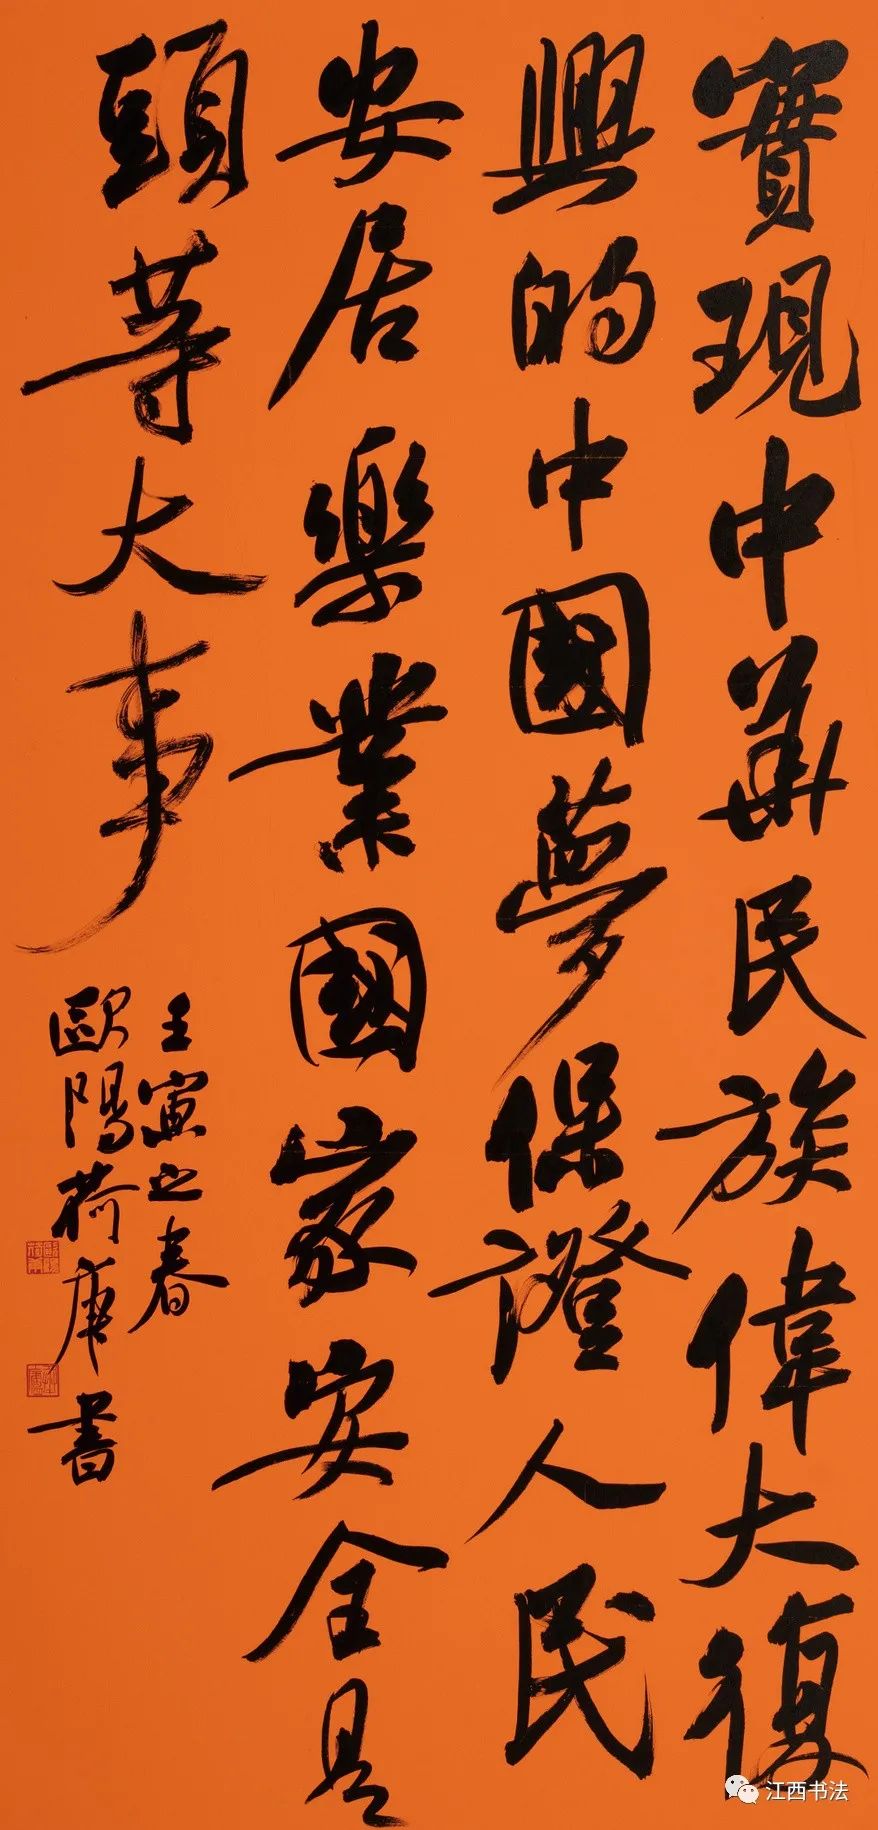 實現中華民族偉大復
興的中國夢保證人民
安居樂業國家安全是
頭等大事
壬寅之春
歐陽荷庚書
江西书法